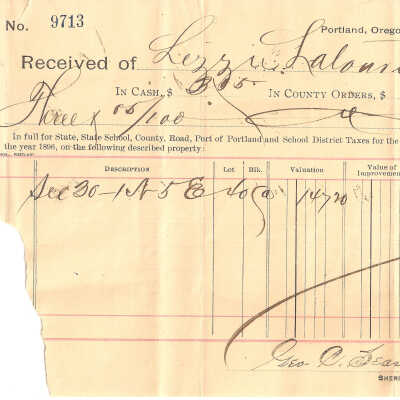 No. 9713 Portland, Orego
Received of Lizzie
IN CASH, $ 3 05 IN COUNTY ORDERS, $
Three & 05/100
In full for State, State School, County, Road, Port of Portland and School District Taxes for the
the year 1896, on the following described property:
DESCRIPTION Lot Blk. Valuation Value of Improvemen
Sec 30-1N 5E 40
Geo. C. Sears
SHER